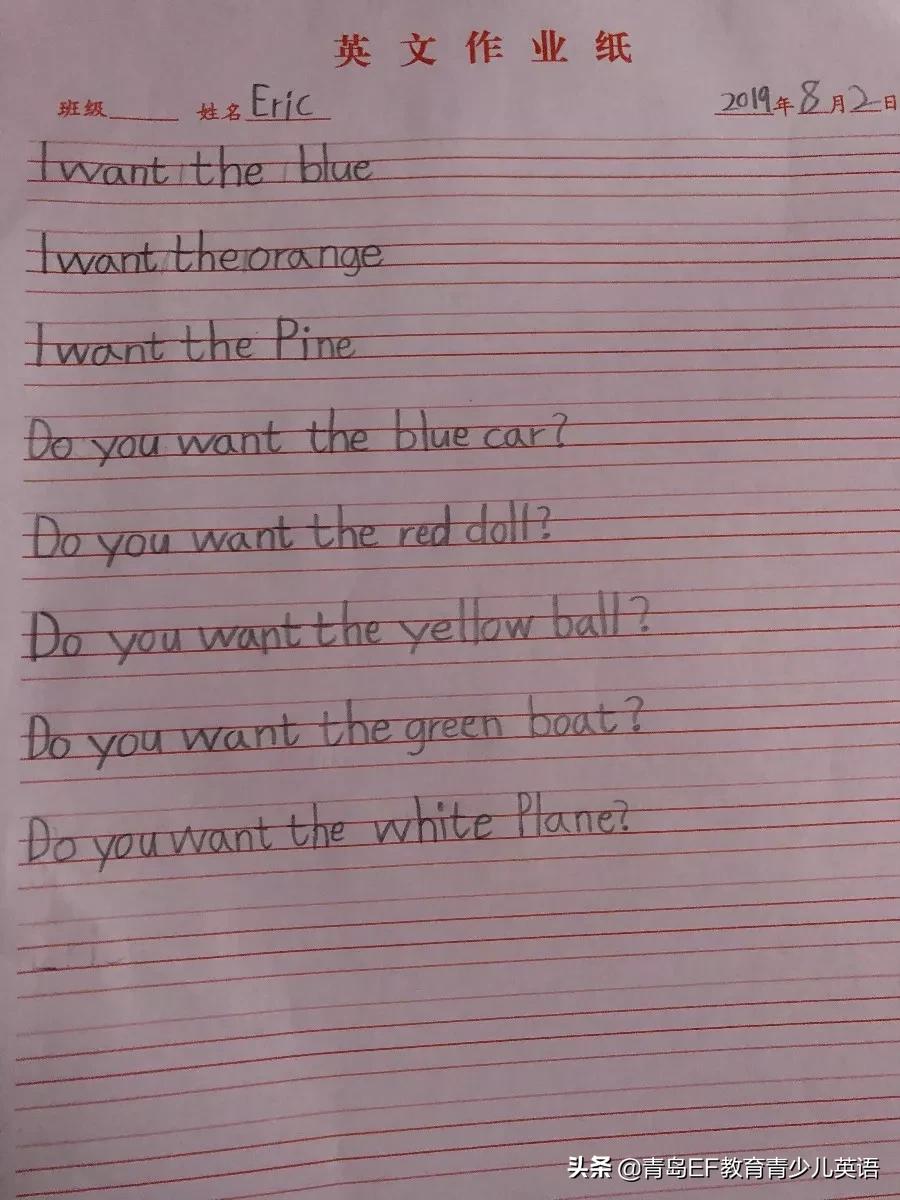 英文作业纸
班级 姓名 Eric 2019年8月2日
I want the blue
I want the orange
I want the Pine
Do you want the blue car?
Do you want the red doll?
Do you want the yellow ball?
Do you want the green boat?
Do you want the white Plane?
头条 @青岛EF教育青少儿英语